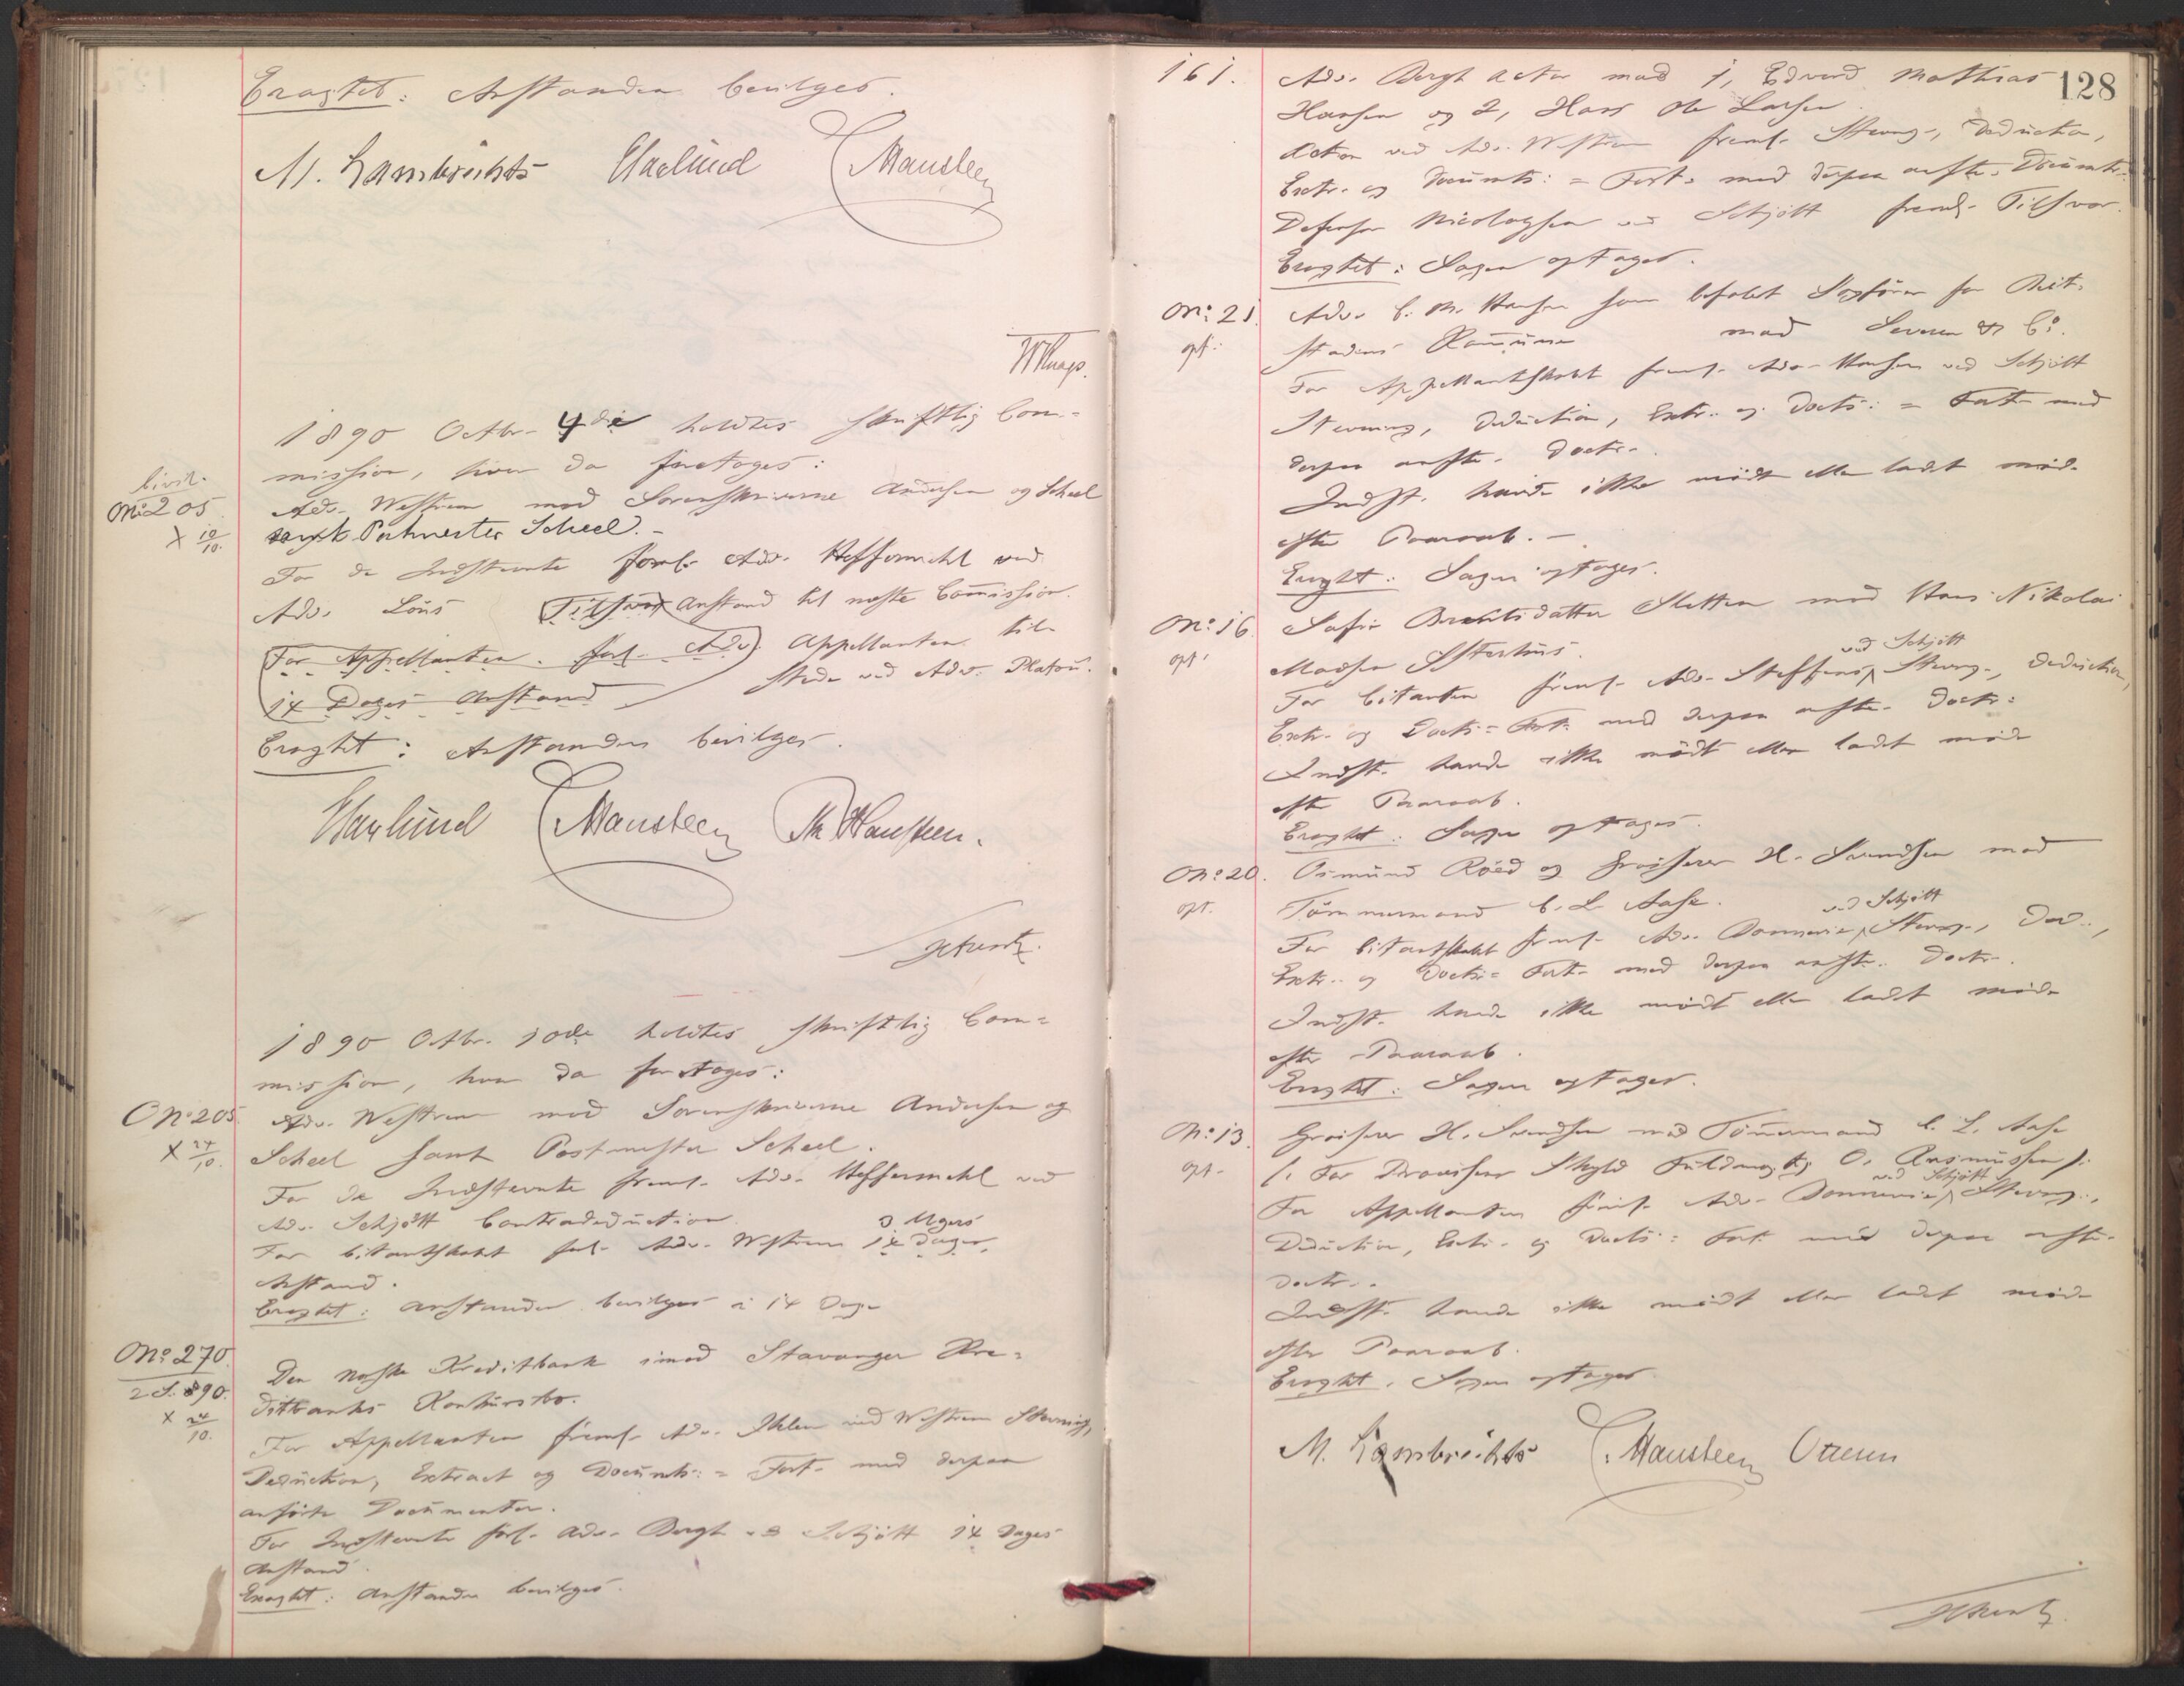 Eragtet: Anstanden bevilges.
M. Lambrechts Haslund C. Hansteen
1890 Octbr. 4de holdtes skriftlig Com-
mission, hvor da foretoges:
Civil.
No. 205
X 10/10.
Adv. Westrum mod Sorenskriverne Andersen og Scheel
samt Postmester Scheel.-
For de Indstevnte forl. Adv. Heffermehl ved
Adv. Löus Tilsvar Anstand til næste Commission.
For Appellanten. forl. Adv. Appellanten til-
14 Dages Anstand stede ved Adv. Platou.
Eragtet: Anstanden bevilges.
Haslund C. Hansteen Hansteen.
1890 Octbr. 10de holdtes skriftlig Com-
mission, hvor da foretoges:
No. 205.
X 24/10.
Adv. Westrum mod Sorenskriverne Andersen og
Scheel samt Postmester Scheel.
For de Indstevnte freml. Adv. Heffermehl ved
Adv. Schjött Contradeduction
For Citantskabet forl. Adv. Westrum 14 Dages 3 Ugers
Anstand.
Eragtet: Anstanden bevilges i 14 Dage
No. 270.
2 S. 890.
X 24/10.
Den norske Kreditbank imod Stavanger Kre-
ditbanks Konkursbo.
For Appellanten freml. Adv. Ihlen ved Westrum Stevning,
Deduction, Extract og Documts: = Fort. med derpaa
anförte Documenter.
For Indstevnte forl. Adv. Bergh ved Schjött 14 Dages
Anstand.
Eragtet: Anstanden bevilges.
128
161.
Adv. Bergh Actor mod 1, Edvard Mathias
Hansen og 2, Hans Ole Larsen.
Actor ved Adv. Westrum freml. Stevng., Deduction,
Extr. og Documts: = Fort. med derpaa anfte. Documtr.
Defensor Nicolaysen ved Schjött freml. Tilsvar.
Eragtet: Sagen optages.
No. 21.
opt:
Adv. C. M. Hansen som befalet Sagförer for
stadens Kommune mod Severin & Co.
For Appellantskabet freml. Adv. Hansen ved Schjött
Stevning, Deduction, Extr. og Docts: = Fort. med
derpaa anfte. Doctr.
Indst. havde ikke mödt eller ladt möde
efter Paaraab.-
Eragtet: Sagen optages.
No. 16.
opt.
Sofie Berentsdatter Sletten mod Hans Nikolai
Madsen
For Citanten freml. Adv. Steffens ved Schjött Stevng., Deduction,
Extr. og Docts: = Fort. med derpaa anfte. Doctr:
Indst. havde ikke mödt eller ladt möde
efter Paaraab.
Eragtet: Sagen optages.
No. 20.
opt.
Osmund Röed og Grosserer H. Svendsen mod
Tömmermand C. L. Aase.
For Citantskabet freml. Adv. Dannevig ved Schjött Stevng., Ded.,
Extr. og Docts: = Fort. med derpaa anfte. Doctr.
Indst. havde ikke mödt eller ladt möde
efter Paaraab.
Eragtet: Sagen optages.
No. 13.
opt.
Grosserer H. Svendsen mod Tömmermand C. L. Aase
(: For Skyld Fuldmægtig O. Rasmussen :)
For Appellanten freml. Adv. Dannevig ved Schjött Stevng.,
Deduction, Extr. og Docts: Fort. med derpaa anfte.
Doctr.
Indst. havde ikke mödt eller ladt möde
efter Paaraab.
Eragtet. Sagen optages.
M. Lambrechts C. Hansteen